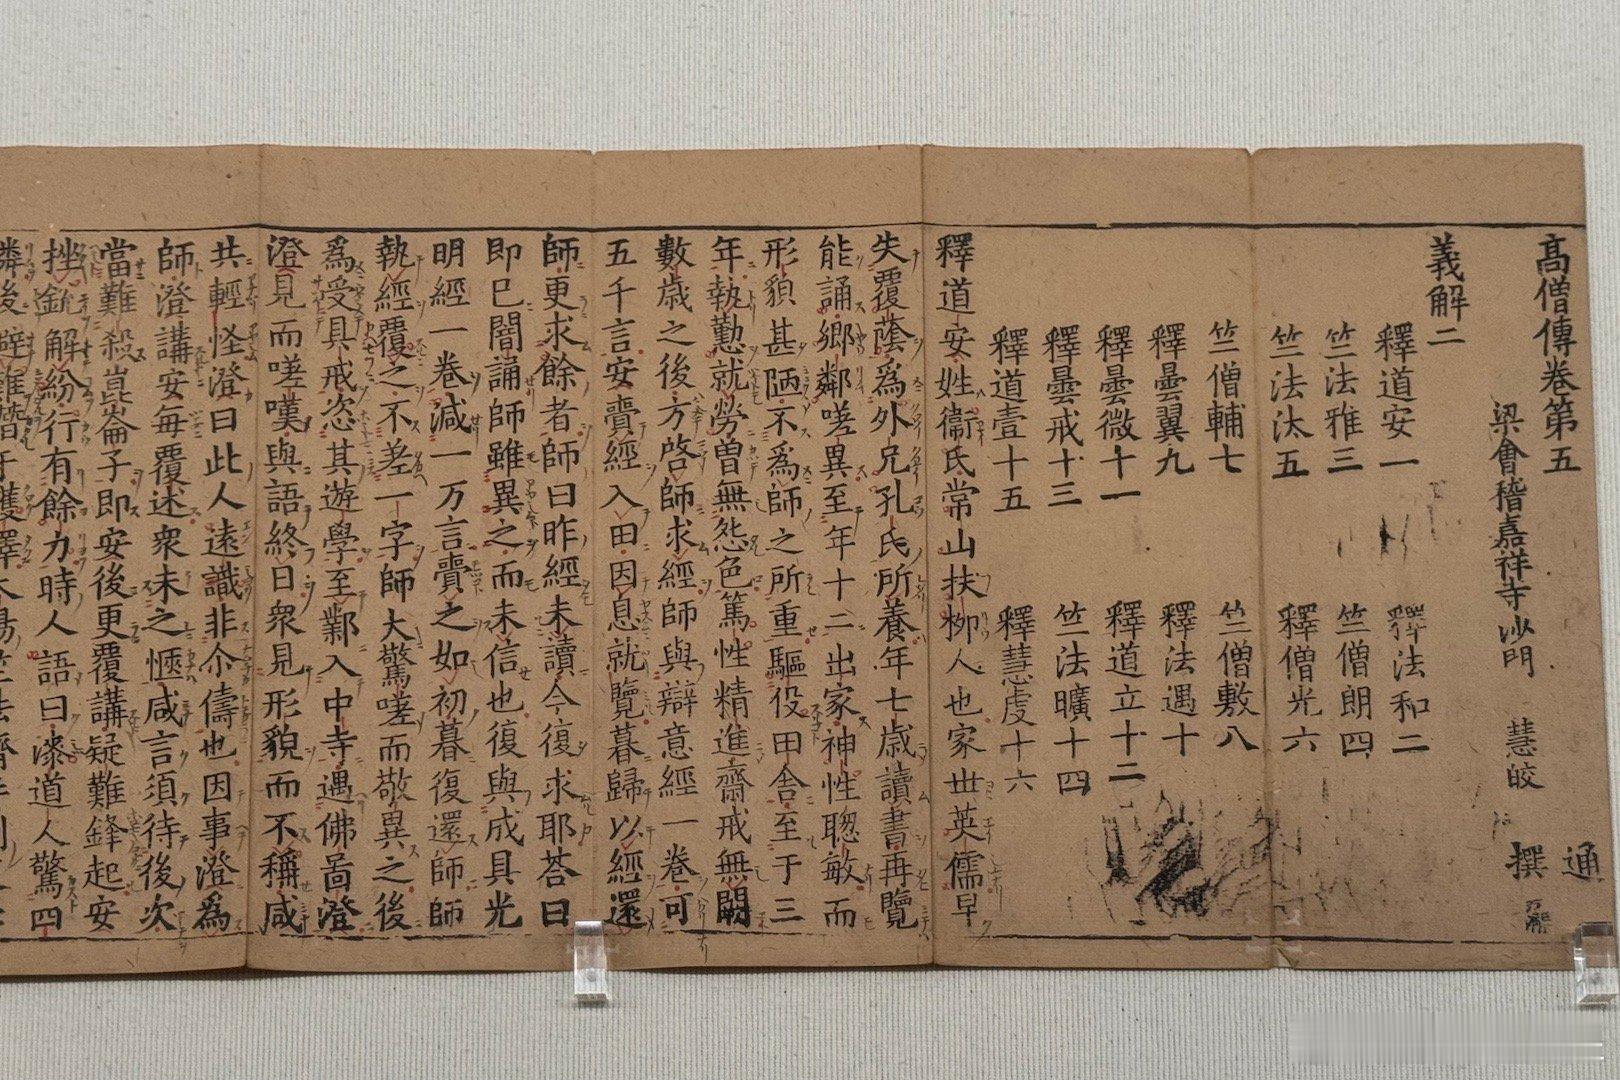 高僧傳卷第五 通
梁會稽嘉祥寺沙門 慧皎 撰
義解二
釋道安一 釋法和二
竺法雅三 竺僧朗四
竺法汰五 釋僧光六
竺僧輔七 竺僧敷八
釋曇翼九 釋法遇十
釋曇微十一 釋道立十二
釋曇戒十三 竺法曠十四
釋道壹十五 釋慧虔十六
釋道安姓衞氏常山扶柳人也家世英儒早
失覆蔭爲外兄孔氏所養年七歲讀書再覽
能誦鄉鄰嗟異至年十二出家神性聰敏而
形貌甚陋不爲師之所重驅役田舍至于三
年執懃就勞曾無怨色篤性精進齋戒無闕
數歲之後方啓師求經師與辯意經一卷可
五千言安賷經入田因息就覽暮歸以經還
師更求餘者師曰昨經未讀今復求耶荅曰
即已闇誦師雖異之而未信也復與成具光
明經一卷減一万言賷之如初暮復還師師
執經覆之不差一字師大驚嗟而敬異之後
爲受具戒恣其遊學至鄴入中寺遇佛啚澄
澄見而嗟嘆與語終日衆見形貌而不稱咸
共輕怪澄曰此人遠識非尒儔也因事澄爲
師澄講安每覆述衆未之愜咸言須待後次
當難殺崑崙子即安後更覆講疑難鋒起安
挫銳解紛行有餘力時人語曰漆道人驚四